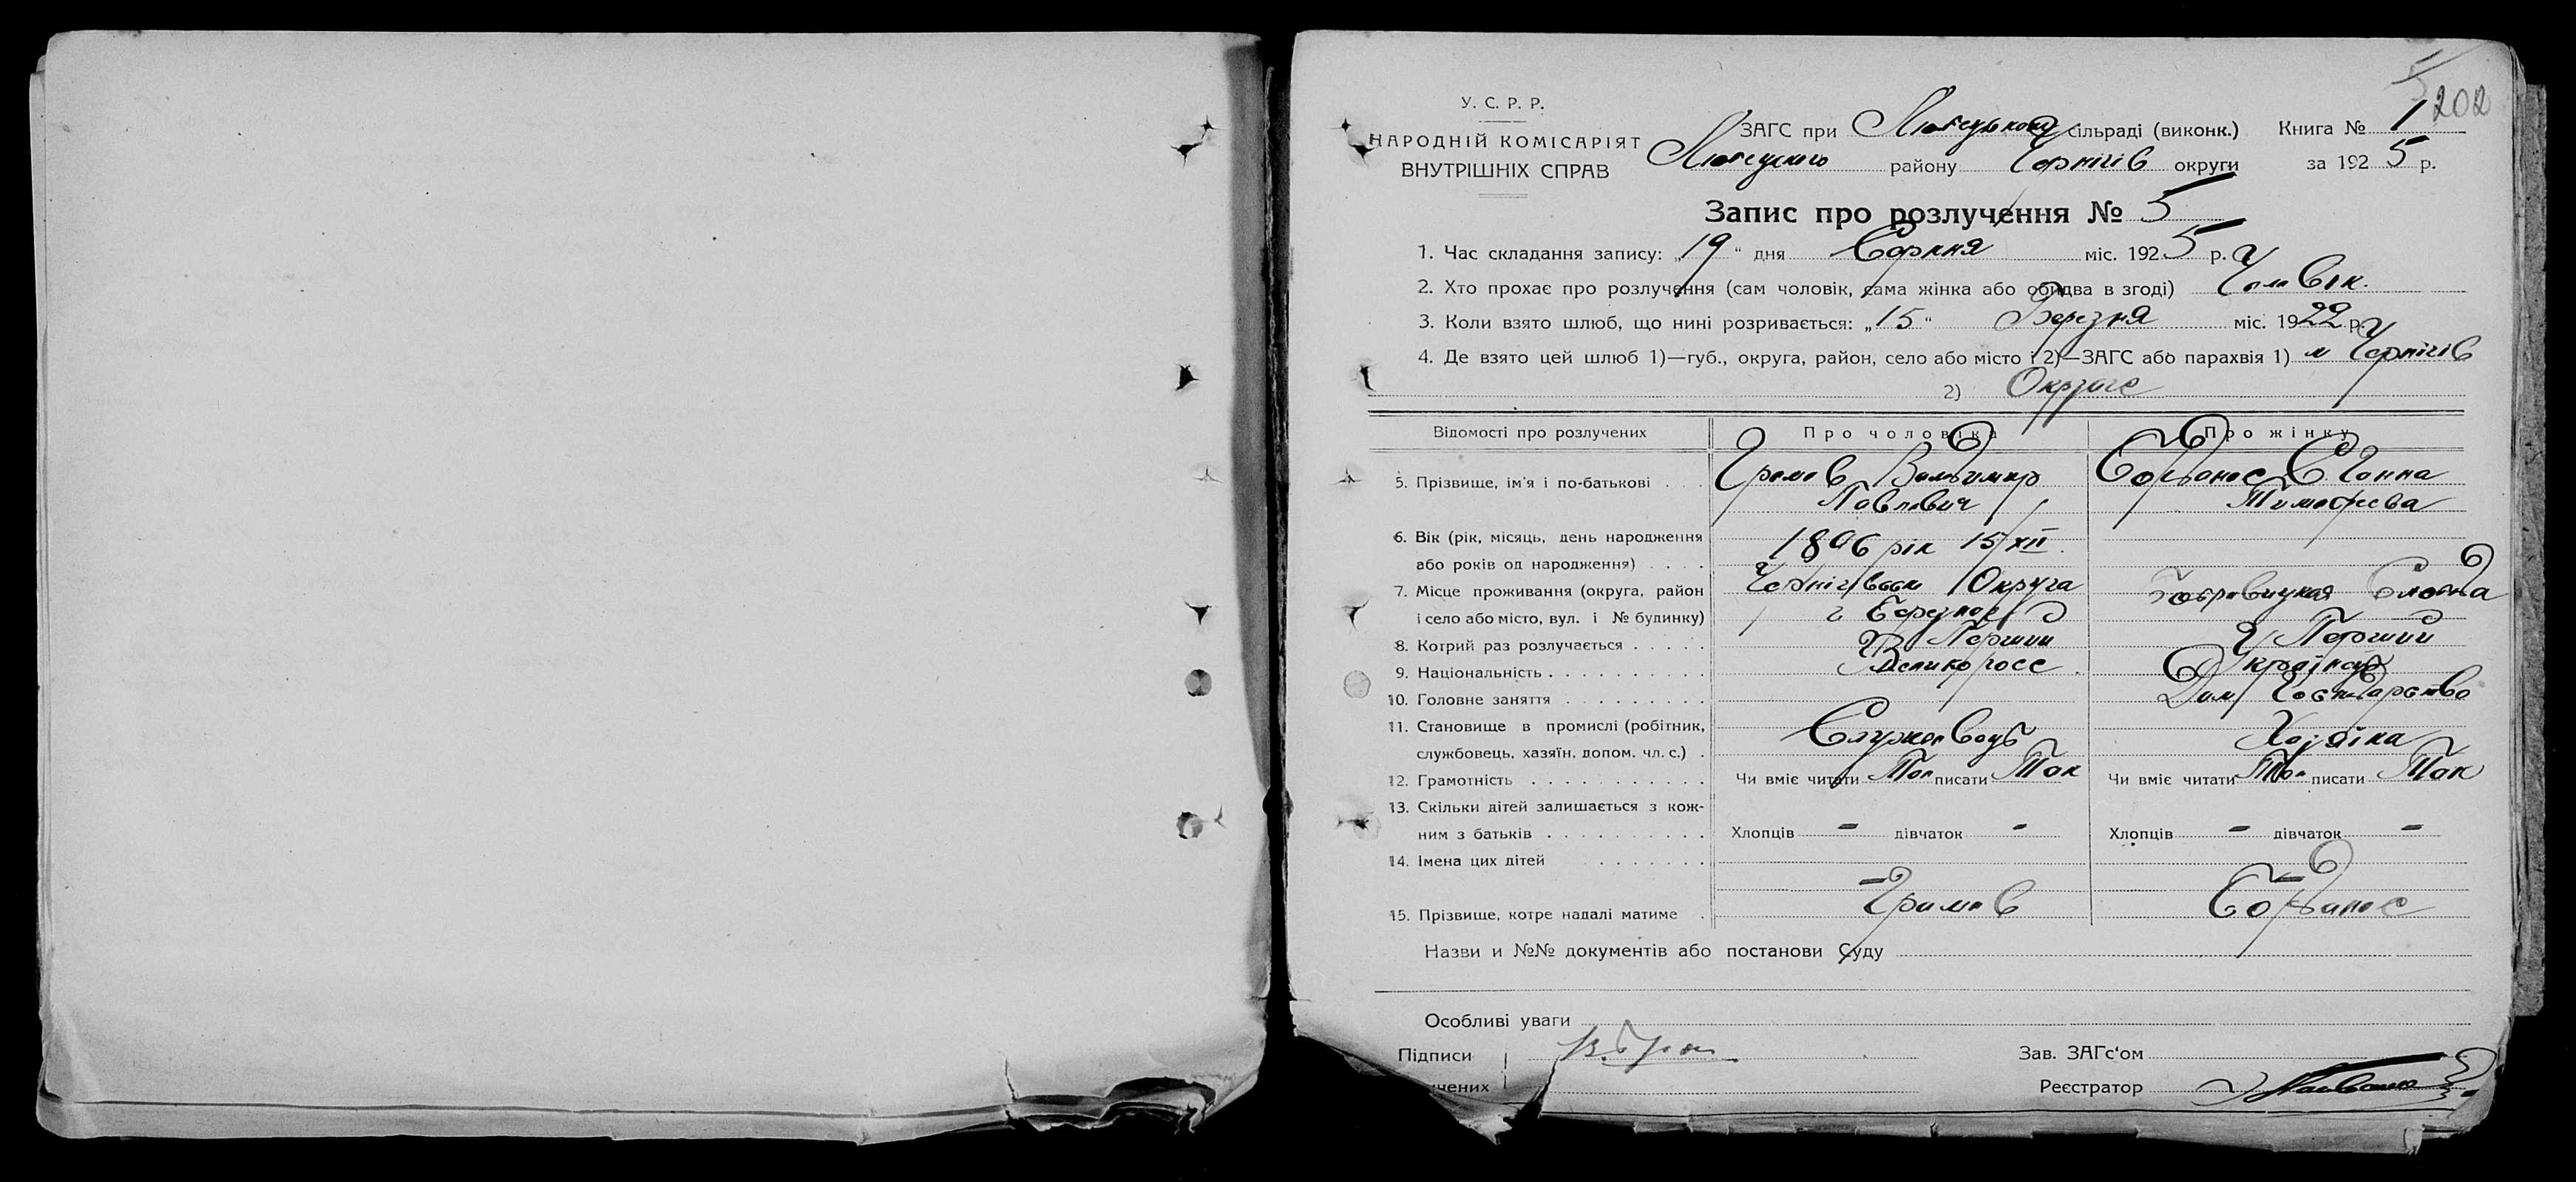 202
У. С. Р. Р.
НАРОДНІЙ КОМІСАРІЯТ
ВНУТРІШНІХ СПРАВ
ЗАГС при сільраді (виконк.) Книга № 1
району Чернігів округи за 1925 р.
Запис про розлучення № 5
1. Час складання запису: „19“ дня Серпня міс. 1925 р.
2. Хто прохає про розлучення (сам чоловік, сама жінка або обидва в згоді) Чоловік.
3. Коли взято шлюб, що нині розривається: „15“ Березня міс. 1922 р.
4. Де взято цей шлюб 1)—губ., округа, район, село або місто і 2)—ЗАГС або парахвія 1) м Чернігів
2)
Відомості про розлучених Про чоловіка Про жінку
5. Прізвище, ім'я і по-батькові Громов Володимир Ганна
Павлович Тимофеева
6. Вік (рік, місяць, день народження 1896 рік 15/XII
або років од народження)
7. Місце проживання (округа, район Округа
і село або місто, вул. і № будинку)
8. Котрий раз розлучається Перший Перший
9. Національність Великоросс
10. Головне заняття Дом Господарство
11. Становище в промислі (робітник, Хозяїка
службовець, хазяїн, допом. чл. с.)
12. Грамотність Чи вміє читати Так писати Так Чи вміє читати Так писати Так
13. Скільки дітей залишається з кож-
ним з батьків Хлопців - дівчаток - Хлопців - дівчаток -
14. Імена цих дітей
- -
15. Прізвище, котре надалі матиме Громов
Назви и №№ документів або постанови Суду
Особливі уваги
Підписи Зав. ЗАГс'ом
чених Реєстратор